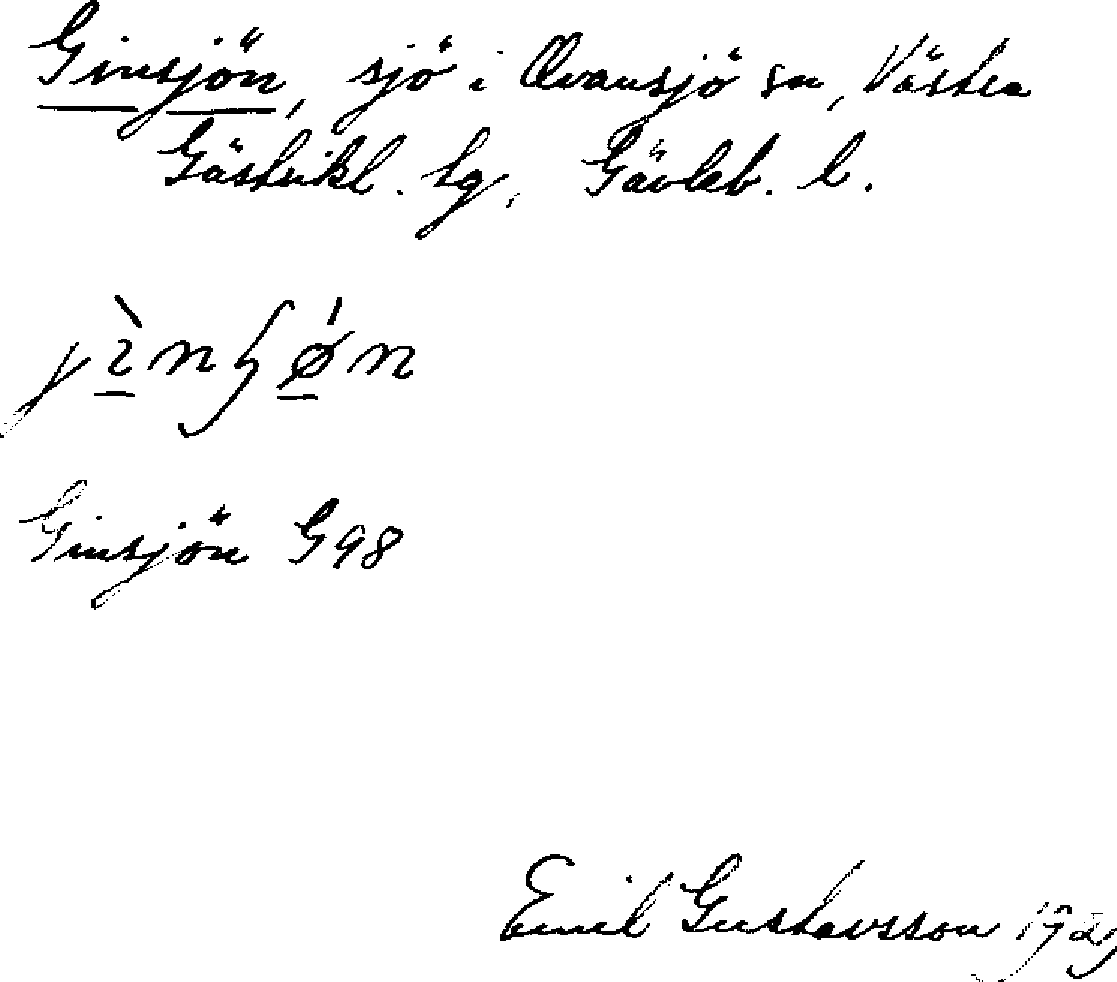 Ginsjön, sjö i Ovansjö sn, Västra
Gästrikl. tg, Gävleb. l.
Ginsjön G98
Emil Gustavsson